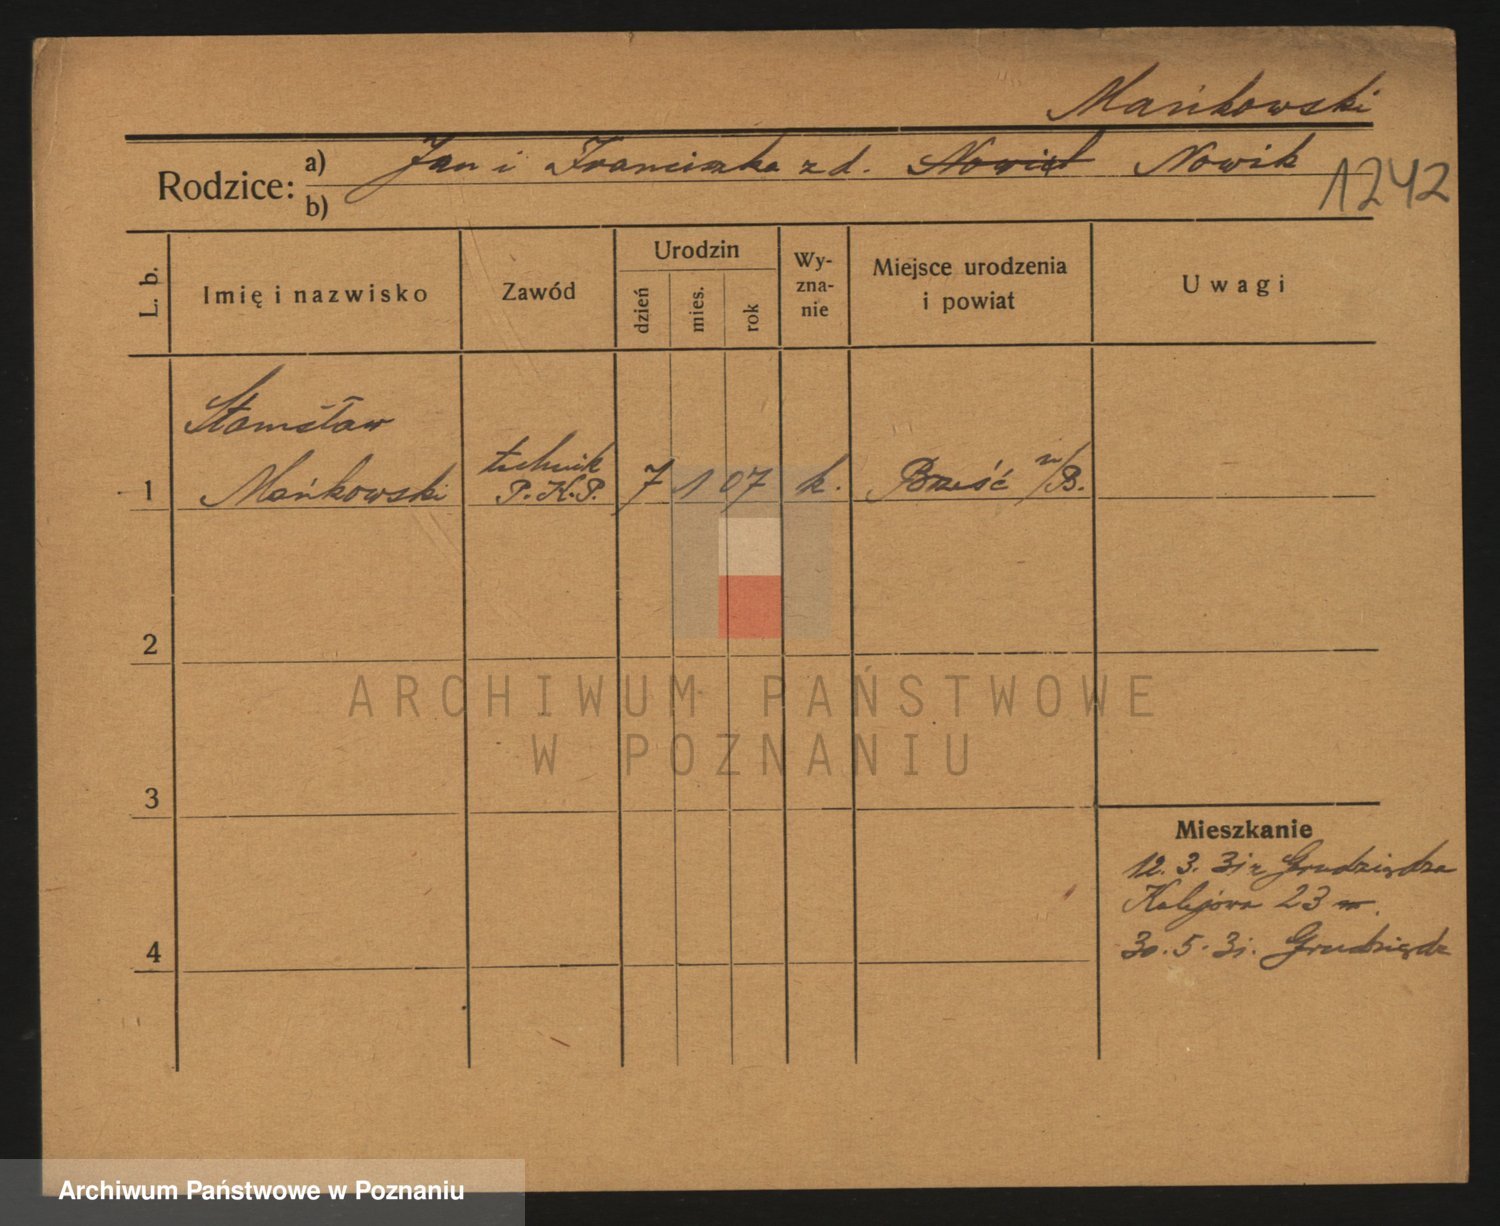 Mańkowski
Rodzice: a) Jan i Franciszka z d. Nowick Nowik
b)
1242
L. b. Imię i nazwisko Zawód Urodzin dzień mies. rok Wy-zna-nie Miejsce urodzenia i powiat Uwagi
Stanisław
technik
1 Mańkowski P.K.P. 7 1 07 k. Brześć n/B.
2
ARCHIWUM PAŃSTWOWE
W POZNANIU
3
Mieszkanie
12. 3. 31 z Grudziądza
Kolejowa 23
4
30. 5. 31. Grudziądz
Archiwum Państwowe w Poznaniu